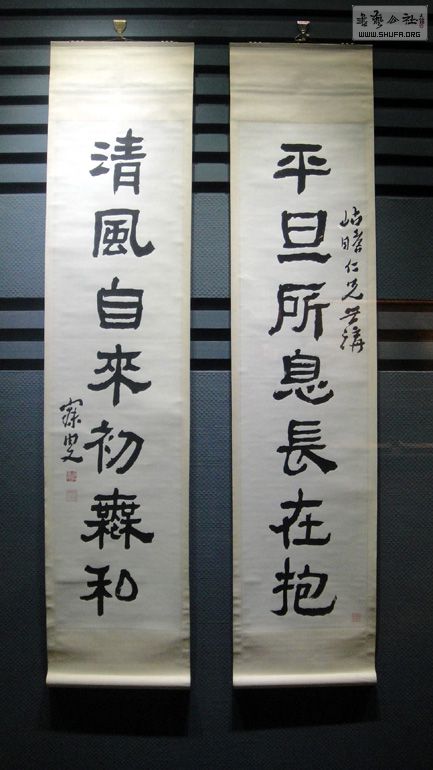 書藝公社
WWW.SHUFA.ORG
平旦所息長在抱
仁兄
清風自來初無和
寐叟